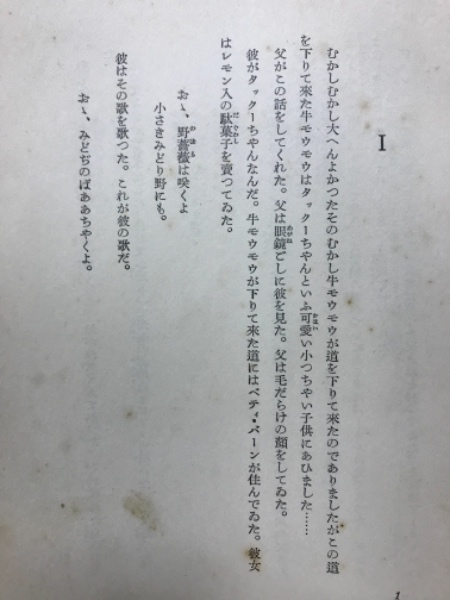 I
むかしむかし大へんよかつたそのむかし牛モウモウが道を下りて来たのでありましたがこの道
を下りて来た牛モウモウはタックーちやんといふ可愛い小つちやい子供にあひました……
父がこの話をしてくれた。父は眼鏡ごしに彼を見た。父は毛だらけの顔をしてゐた。
彼がタックーちやんなんだ。牛モウモウが下りて来た道にはベティ・バーンが住んでゐた。彼女
はレモン入の駄菓子を賣つてゐた。
おゝ、野薔薇は咲くよ
小さきみどり野にも。
彼はその歌を歌つた。これが彼の歌だ。
おゝ、みどぢのばああちやくよ。
1